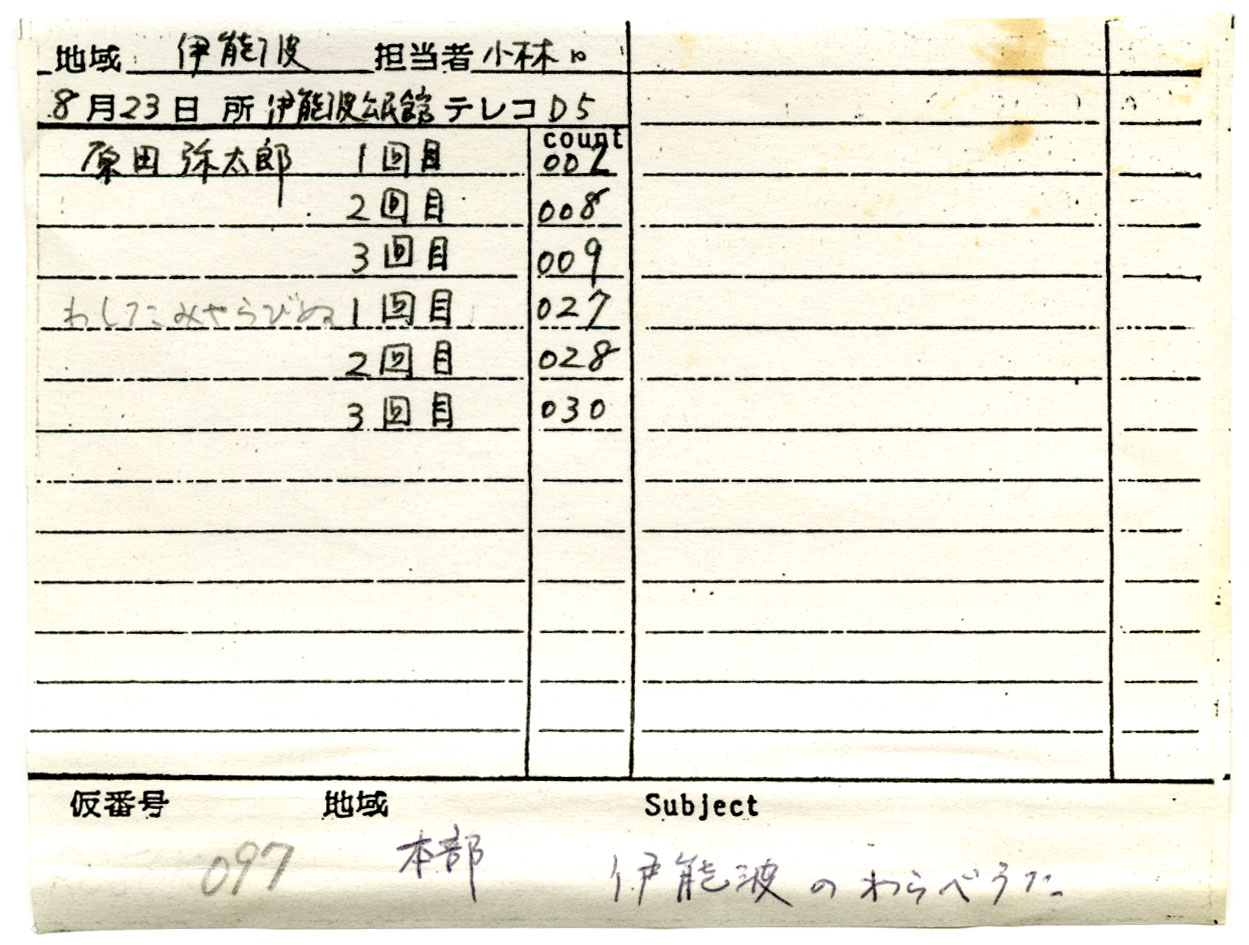 地域 伊能波 担当者 小林
8月23日 所 伊能波公民館 テレコ D5
count
原田 弥太郎 1回目 002
2回目 008
3回目 009
わしたみやらびぬ 1回目 027
2回目 028
3回目 030
仮番号 地域 Subject
097 本部 伊能波のわらべうた